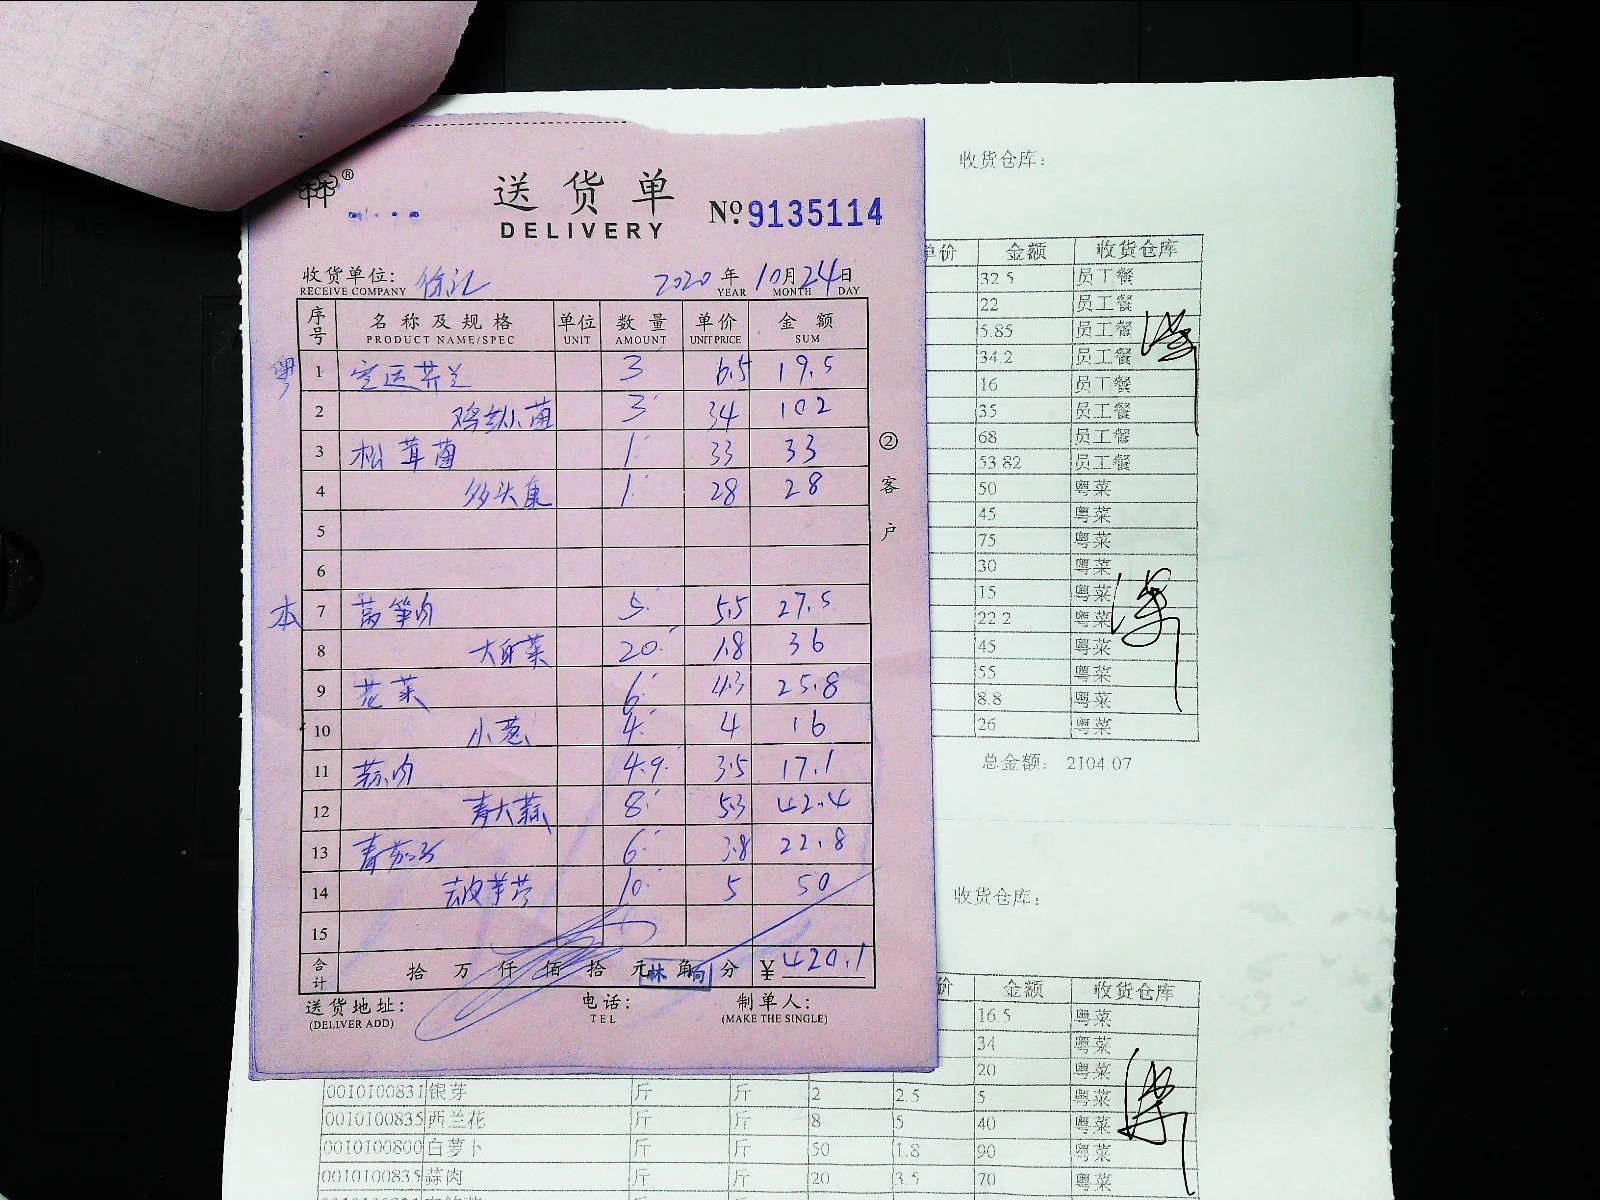 ®
送货单
DELIVERY
№ 9135114
收货单位: 徐汇 2020 年 10 月 24 日
RECEIVE COMPANY YEAR MONTH DAY
序号 名称及规格 单位 数量 单价 金额
PRODUCT NAME/SPEC UNIT AMOUNT UNIT PRICE SUM
粤 1 空运芥兰 3 6.5 19.5
2 鸡枞菌 3 34 102
3 松茸菌 1 33 33
4 1 28 28
5
6
本 7 莴笋肉 5 5.5 27.5
8 大白菜 20 1.8 36
9 花菜 6 4.3 25.8
10 小葱 4 4 16
11 蒜肉 4.9 3.5 17.1
12 青大蒜 8 5.3 42.4
13 青茄子 6 3.8 22.8
14 去皮芋艿 10 5 50
15
合计 拾 万 仟 佰 拾 元 角 分 ¥ 420.1
送货地址: 电话: 制单人:
(DELIVER ADD) TEL (MAKE THE SINGLE)
② 客户
收货仓库:
单价 金额 收货仓库
32.5 员工餐
22 员工餐
5.85 员工餐
34.2 员工餐
16 员工餐
35 员工餐
68 员工餐
53.82 员工餐
50 粤菜
45 粤菜
75 粤菜
30 粤菜
15 粤菜
22.2 粤菜
45 粤菜
55 粤菜
8.8 粤菜
26 粤菜
总金额: 2104.07
收货仓库:
价 金额 收货仓库
16.5 粤菜
34 粤菜
20 粤菜
0010100831 银芽 斤 斤 2 2.5 5 粤菜
0010100835 西兰花 斤 斤 8 5 40 粤菜
0010100800 白萝卜 斤 斤 50 1.8 90 粤菜
0010100835 蒜肉 斤 斤 20 3.5 70 粤菜